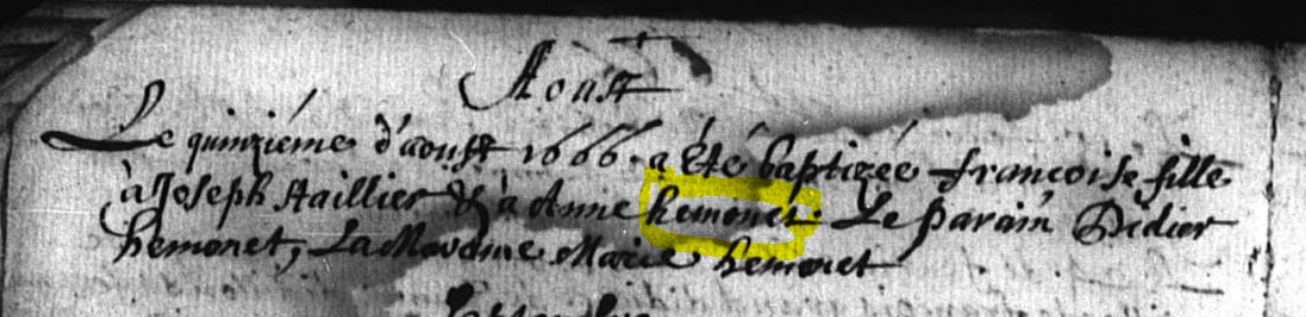 Aoust
Le quinziéme d'aoust 1666. a été baptizée francoise fille
à Joseph & à Anne hemonet. Le parain Didier
hemonet, La Maraine Marie hemonet